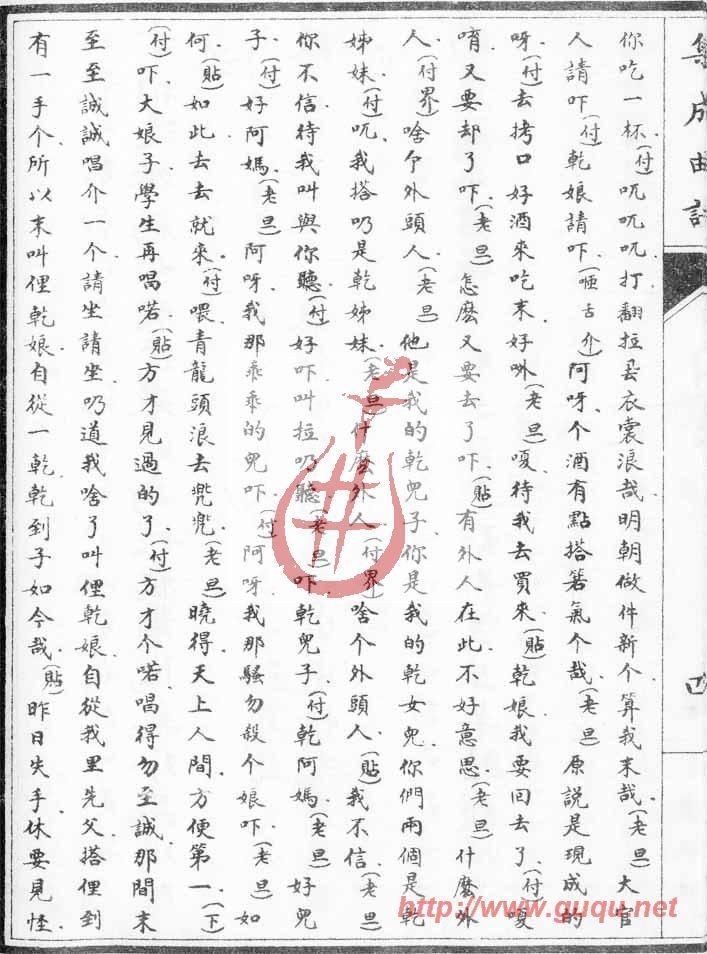 集成曲譜
你吃一杯(付)吭吭吭打翻拉丟衣裳浪哉明朝做件新个算我末哉(老旦)大官
人請吓(付)乾娘請吓(咂舌介)阿呀个酒有點搭箬氣个哉(老旦)原說是現成的
呀(付)去拷口好酒來吃末好㖸(老旦)嗄待我去買來(貼)乾娘我要回去了(付)嗄
唷又要却了吓(老旦)怎麽又要去了吓(貼)有外人在此不好意思(老旦)什麽外
人(付界)啥个外頭人(老旦)他是我的乾兒子你是我的乾女兒你們兩個是乾
姊妹(付)吭我搭㑚是乾姊妹(老旦)什麽外人(付界)啥个外頭人(貼)我不信(老旦)
你不信待我叫與你聽(付)好吓叫拉㑚聽(老旦)吓乾兒子(付)乾阿媽(老旦)好兒
子(付)好阿媽(老旦)阿呀我那乖乖的兒吓(付)阿呀我那騷勿殺个娘吓(老旦)如
何(貼)如此去去就來(付)喂青龍頭浪去兜兜(老旦)曉得天上人間方便第一(下)
(付)吓大娘子學生再唱喏(貼)方才見過的了(付)方才个喏唱得勿至誠那間末
至至誠誠唱介一个請坐請坐㑚道我啥了叫俚乾娘自從我里先父搭俚到
有一手个所以末叫俚乾娘自從一乾乾到子如今哉(貼)昨日失手休要見怪
四
http://www.guqu.net